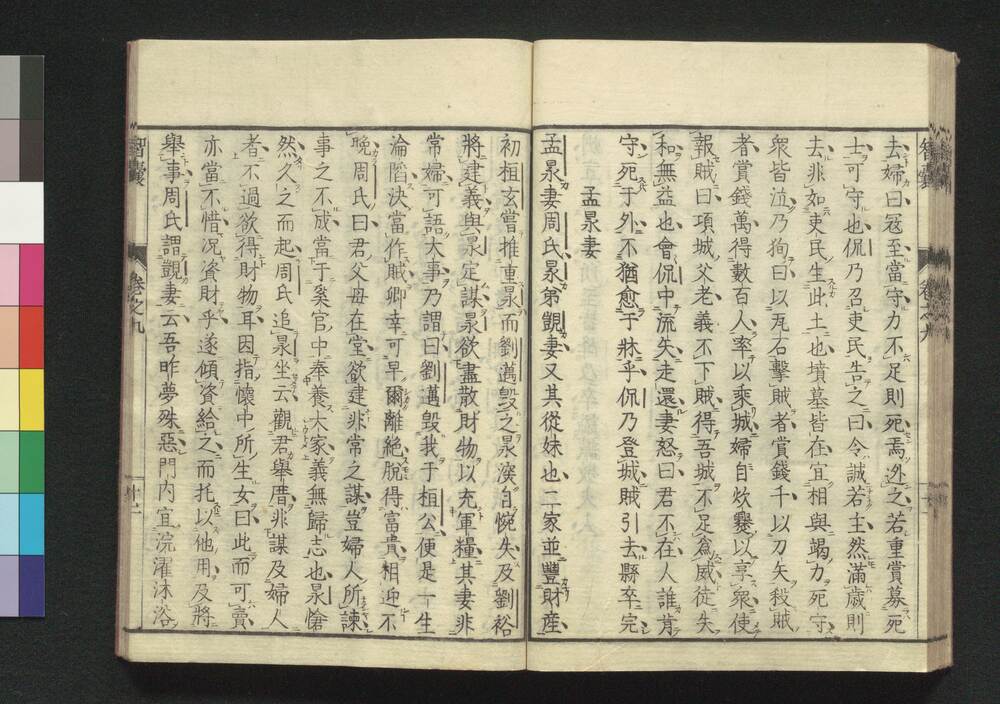 去婦曰冦至當守力不足則死焉逃之若重賞募死
士可守也侃乃召吏民告之曰令誠若主然滿歲則
去非如吏民生此土也墳墓皆在宜相與竭力死守
衆皆泣乃狥曰以瓦石擊賊者賞錢千以刀矢殺賊
者賞錢萬得數百人率以乘城婦自炊爨以享衆使
報賊曰項城父老義不下賊得吾城不足爲威徒失
和無益也會侃中流矢走還妻怒曰君不在人誰肯
守死于外不猶愈于牀乎侃乃登城賊引去縣卒完
孟昶妻
孟昶妻周氏昶弟覬妻又其從妹也二家並豐財産
初桓玄嘗推重昶而劉邁毀之昶深自惋失及劉裕
將建義與昶定謀昶欲盡散財物以充軍糧其妻非
常婦可語大事乃謂曰劉邁毀我于桓公便是一生
淪陷決當作賊卿幸可早爾離絶脫得富貴相迎不
晚周氏曰君父母在堂欲建非常之謀豈婦人所諫
事之不成當于奚官中奉養大家義無歸志也昶愴
然久之而起周氏追昶坐云觀君舉厝非謀及婦人
者不過欲得財物耳因指懷中所生女曰此而可賣
亦當不惜况資財乎遂傾資給之而托以他用及將
舉事周氏謂覬妻云吾昨夢殊惡門内宜浣濯沐浴
智囊
卷之九
十二